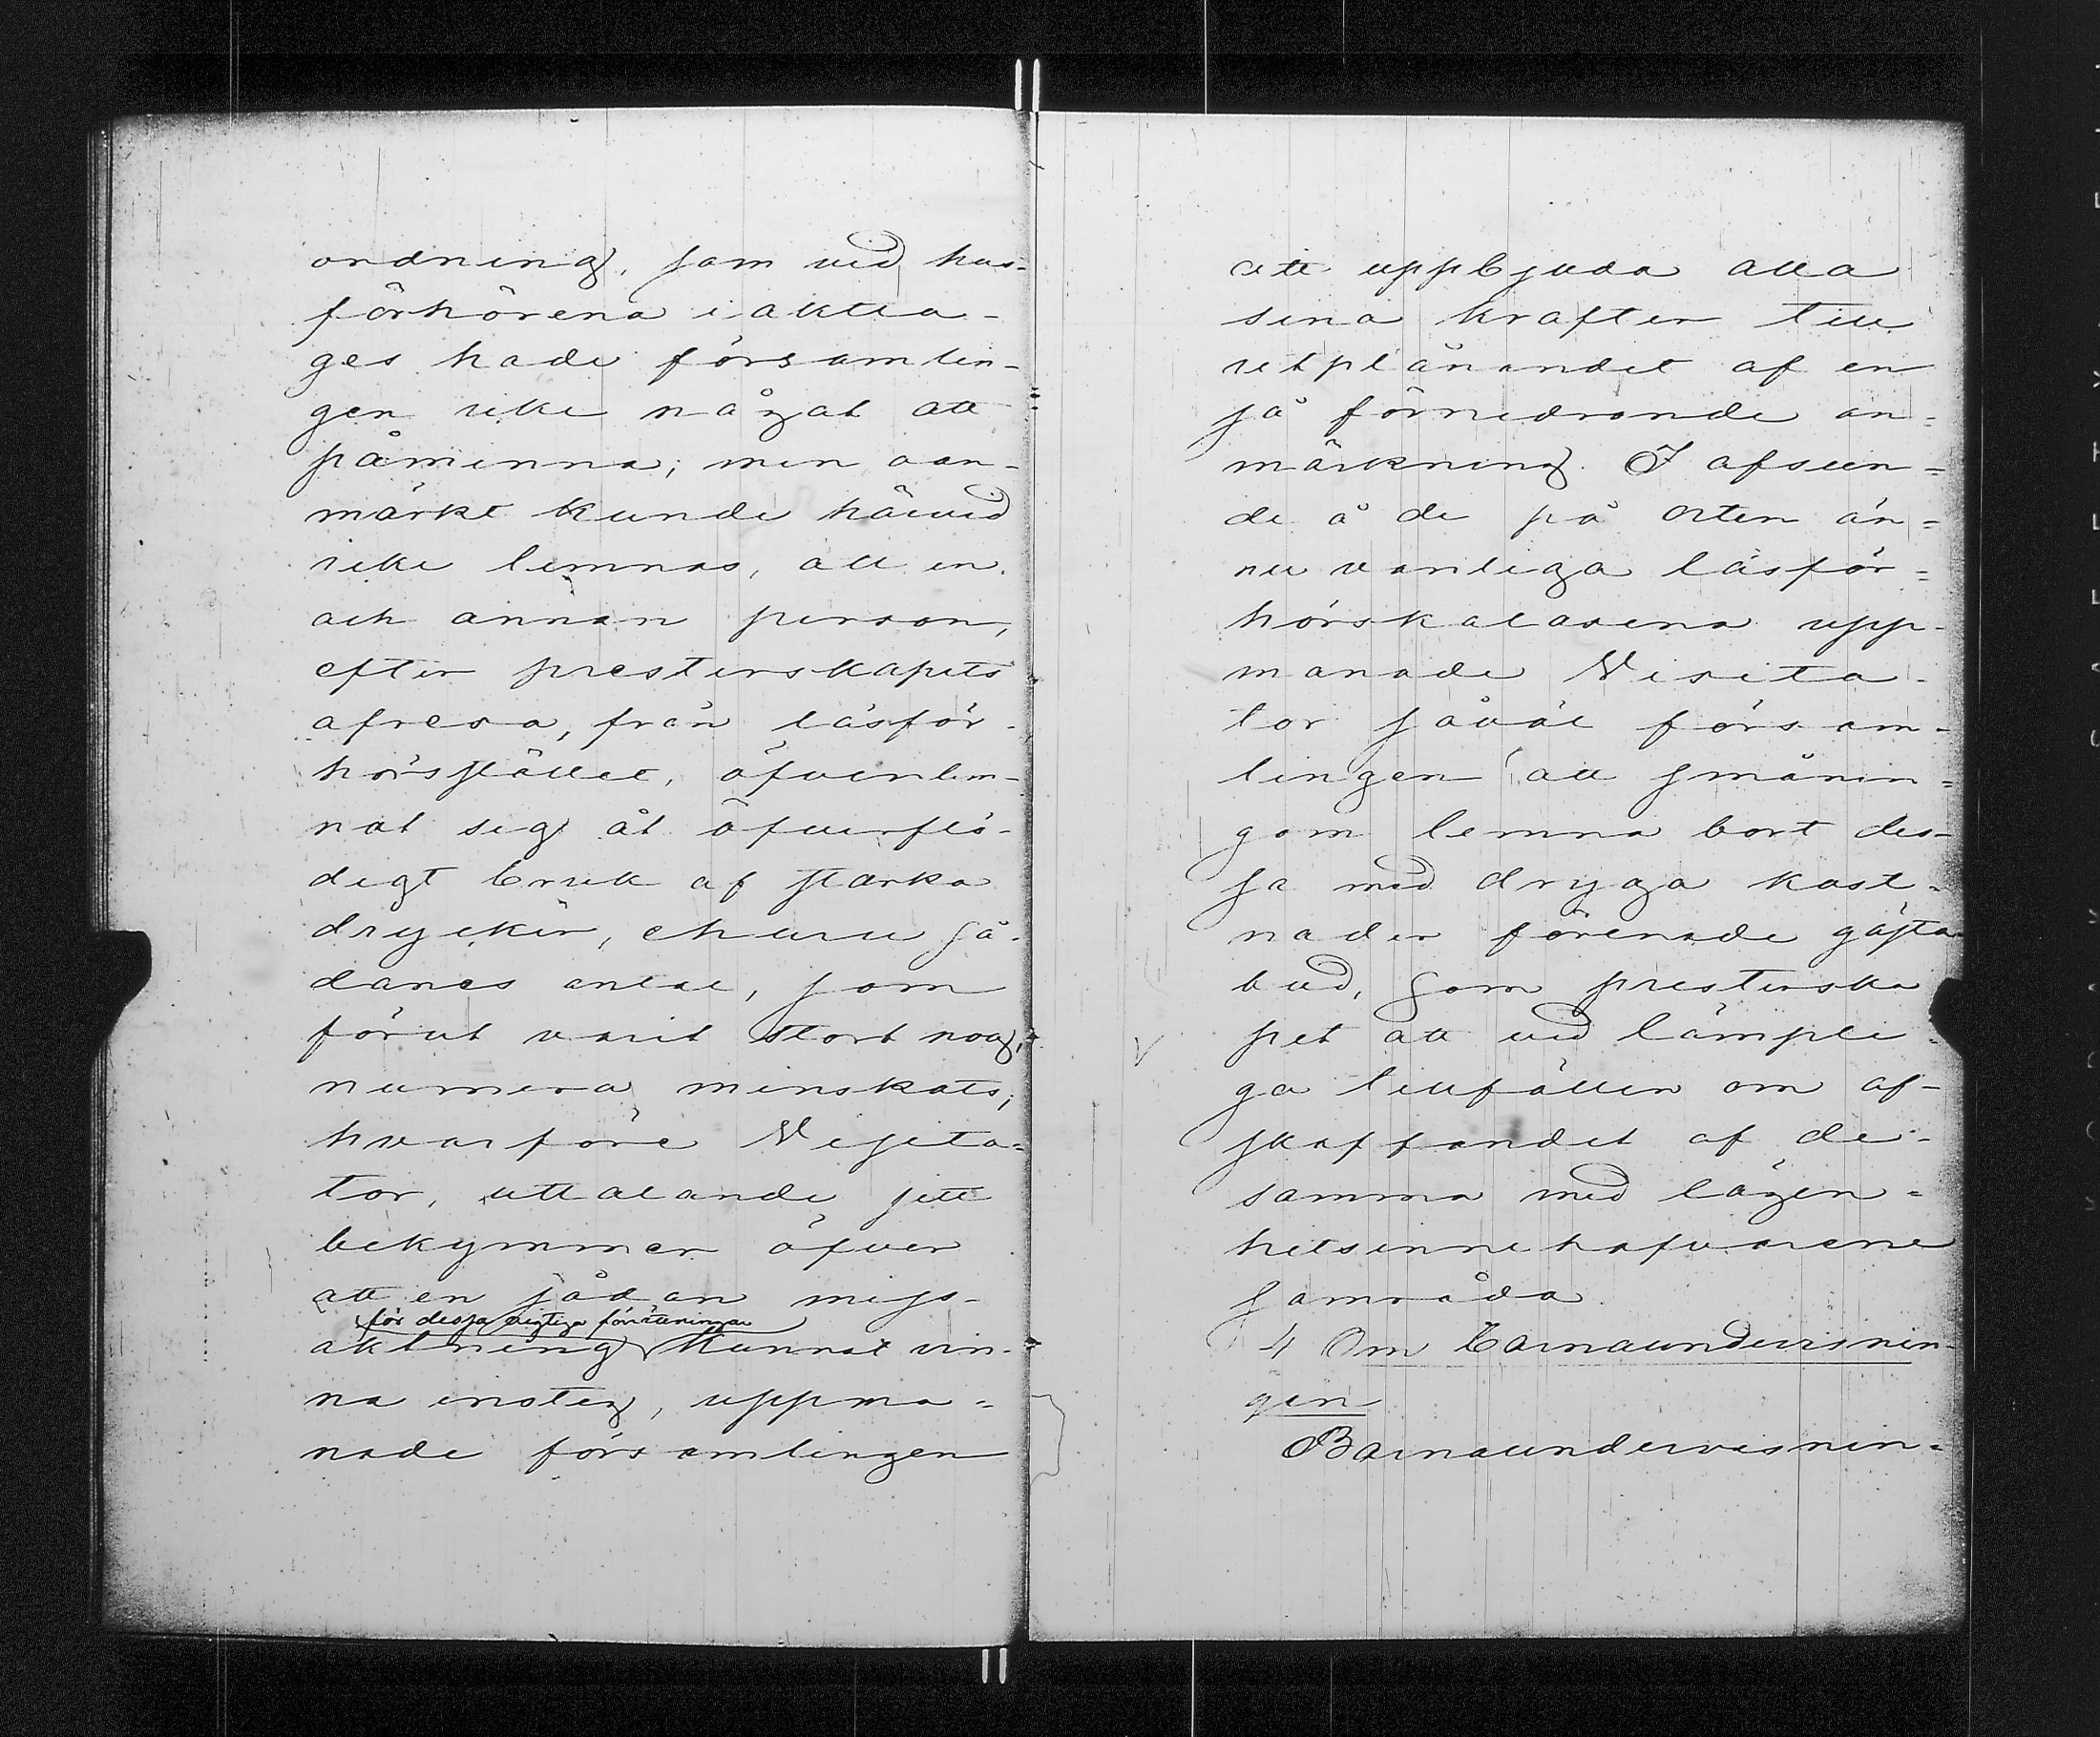 ordning, som vid hus-
förhören iaktta-
ges hade församlin-
gen icke något att
påminna; men oan-
märkt kunde härvid
icke lemnas, att en
och annan person,
efter presterskapets
afresa, från läsför-
hörsstället, öfverlem-
nat sig åt öfverflö-
digt bruk af starka
drycker, ehuru så-
danes antal, som
förut varit stort nog,
numera minskats;
hvarföre Visita-
tor, uttalande sitt
bekymmer öfver
att en sådan miss-
för dessa vigtiga förrättningar
aktning kunnat vin-
na insteg, uppma-
nade församlingen
att uppbjuda alla
sina krafter till
utplånandet af en
så förnedrande an-
märkning. I afseen-
de å de på orten än-
nu vanliga läsför-
hörskalasena upp-
manade Visita-
tor såväl försam-
lingen att smånin-
gom lemna bort des-
sa med dryga kost-
nader förenade gästa-
bud, som presterska
pet att vid lämpli-
ga tillfällen om af-
skaffandet af de-
samma med lägen-
hetsinnehafvarene
samråda.
4 Om barnaundervisnin-
gen
Barnaundervisnin-